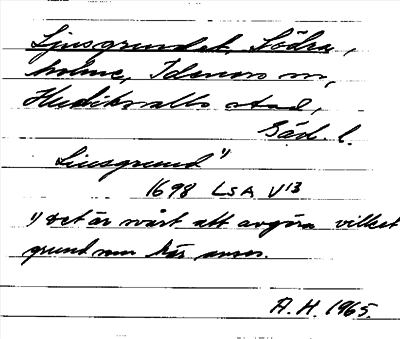 Ljusgrundet, Södra,
holme, Idenors sn,
Hudiksvalls stad,
Gäd. l.
Liusgrund 1)
1698 LSA V13
1) Det är svårt att avgöra vilket
grund som här avses.
A.H. 1965.